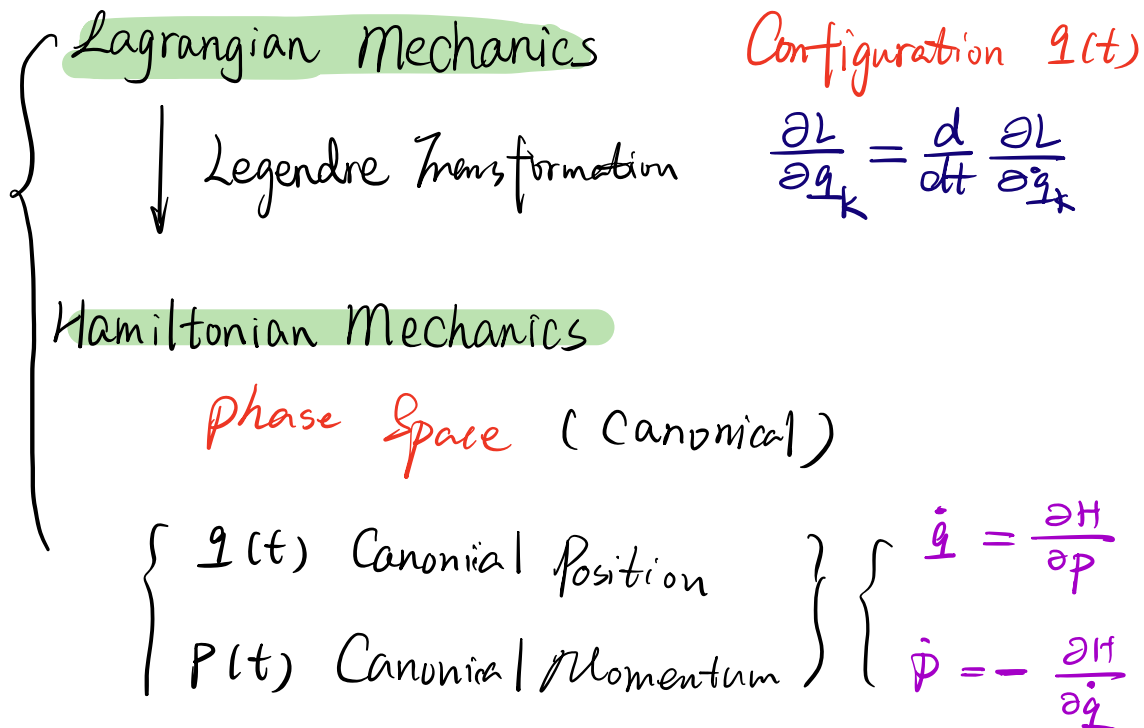 Lagrangian Mechanics
Configuration q(t)
Legendre Transformation
∂L/∂q_k = d/dt ∂L/∂q̇_k
Hamiltonian Mechanics
Phase Space (Canonical)
q(t) Canonical Position
q̇ = ∂H/∂p
P(t) Canonical Momentum
ṗ = - ∂H/∂q̇